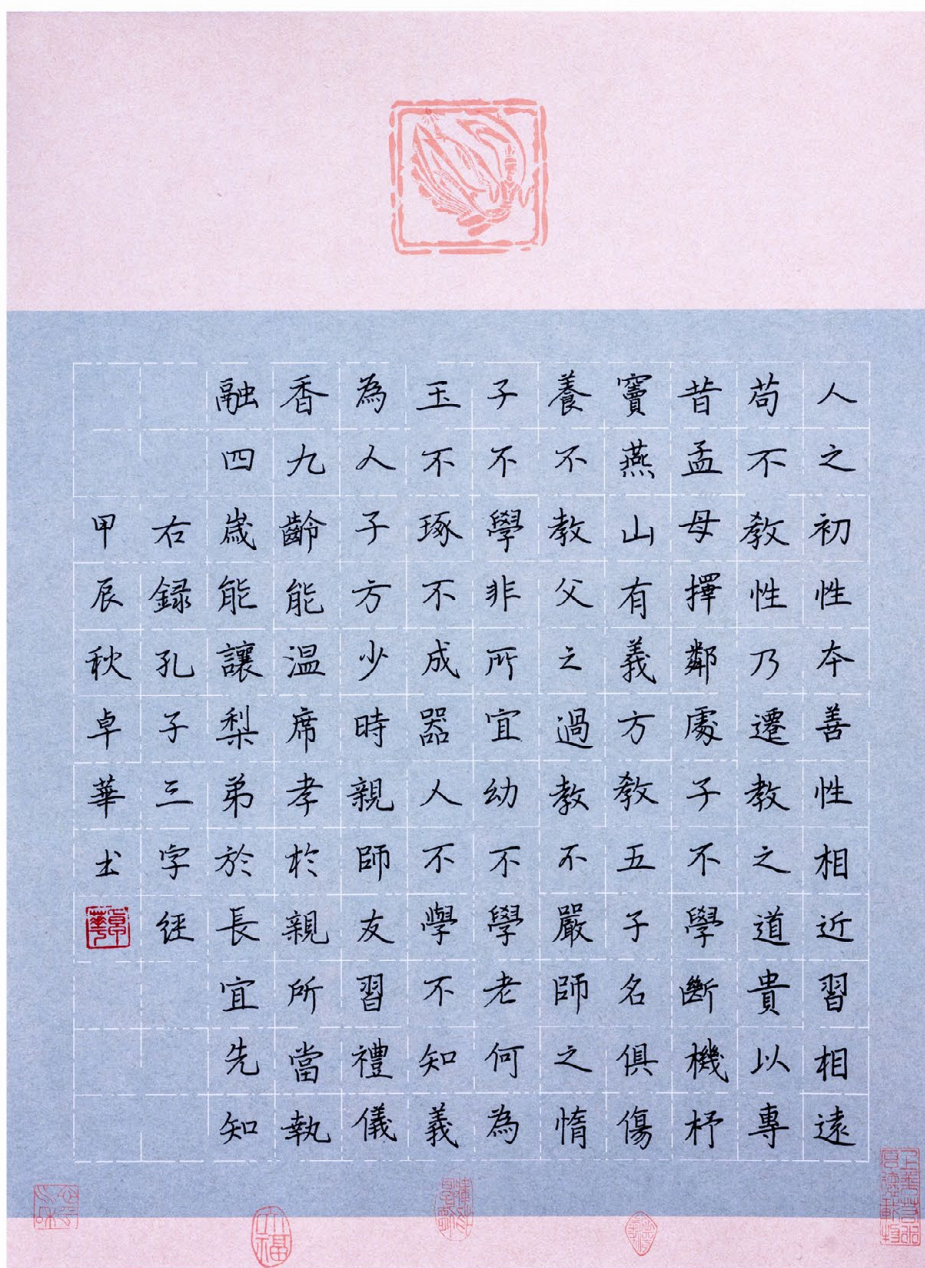 人之初性本善性相近習相遠
苟不教性乃遷教之道貴以專
昔孟母擇鄰處子不學斷機杼
竇燕山有義方教五子名俱傷
養不教父之過教不嚴師之惰
子不學非所宜幼不學老何為
玉不琢不成器人不學不知義
為人子方少時親師友習禮儀
香九齡能温席孝於親所當執
融四歲能讓梨弟於長宜先知
右録孔子三字經
甲辰秋卓華书
卓華